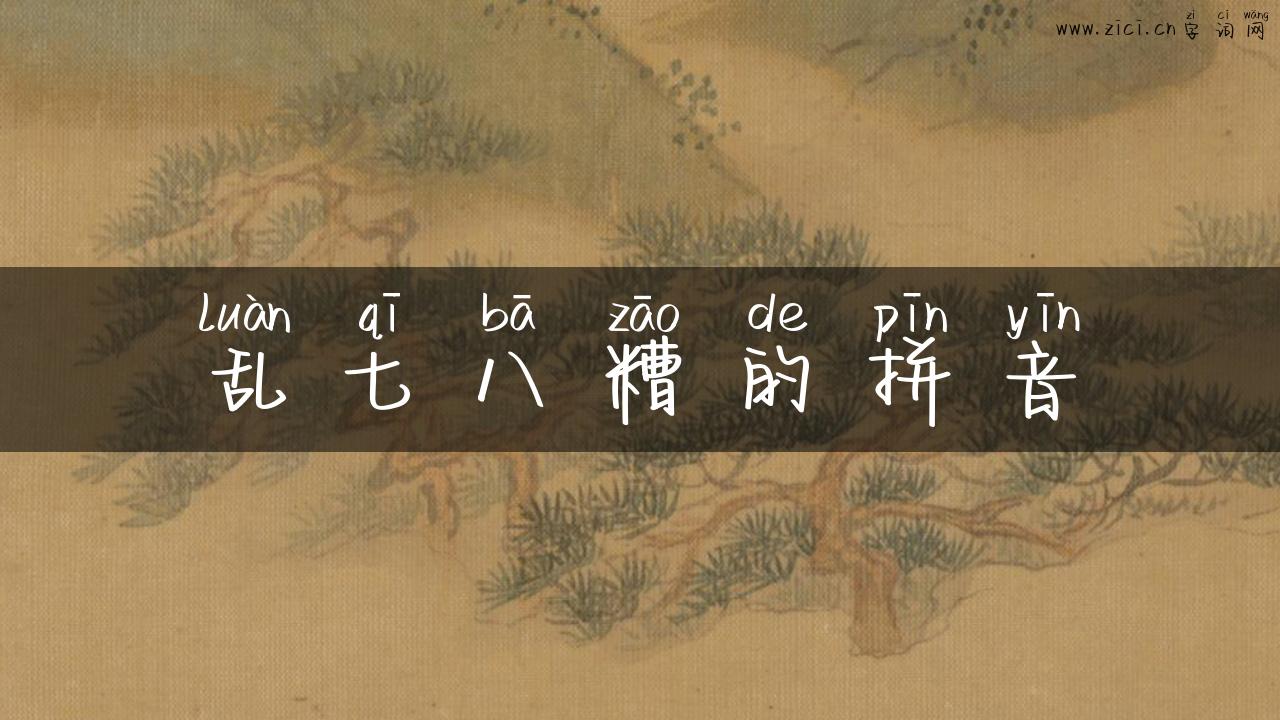 zì cí wǎng
www.zici.cn 字词网
luàn qī bā zāo de pīn yīn
乱七八糟的拼音